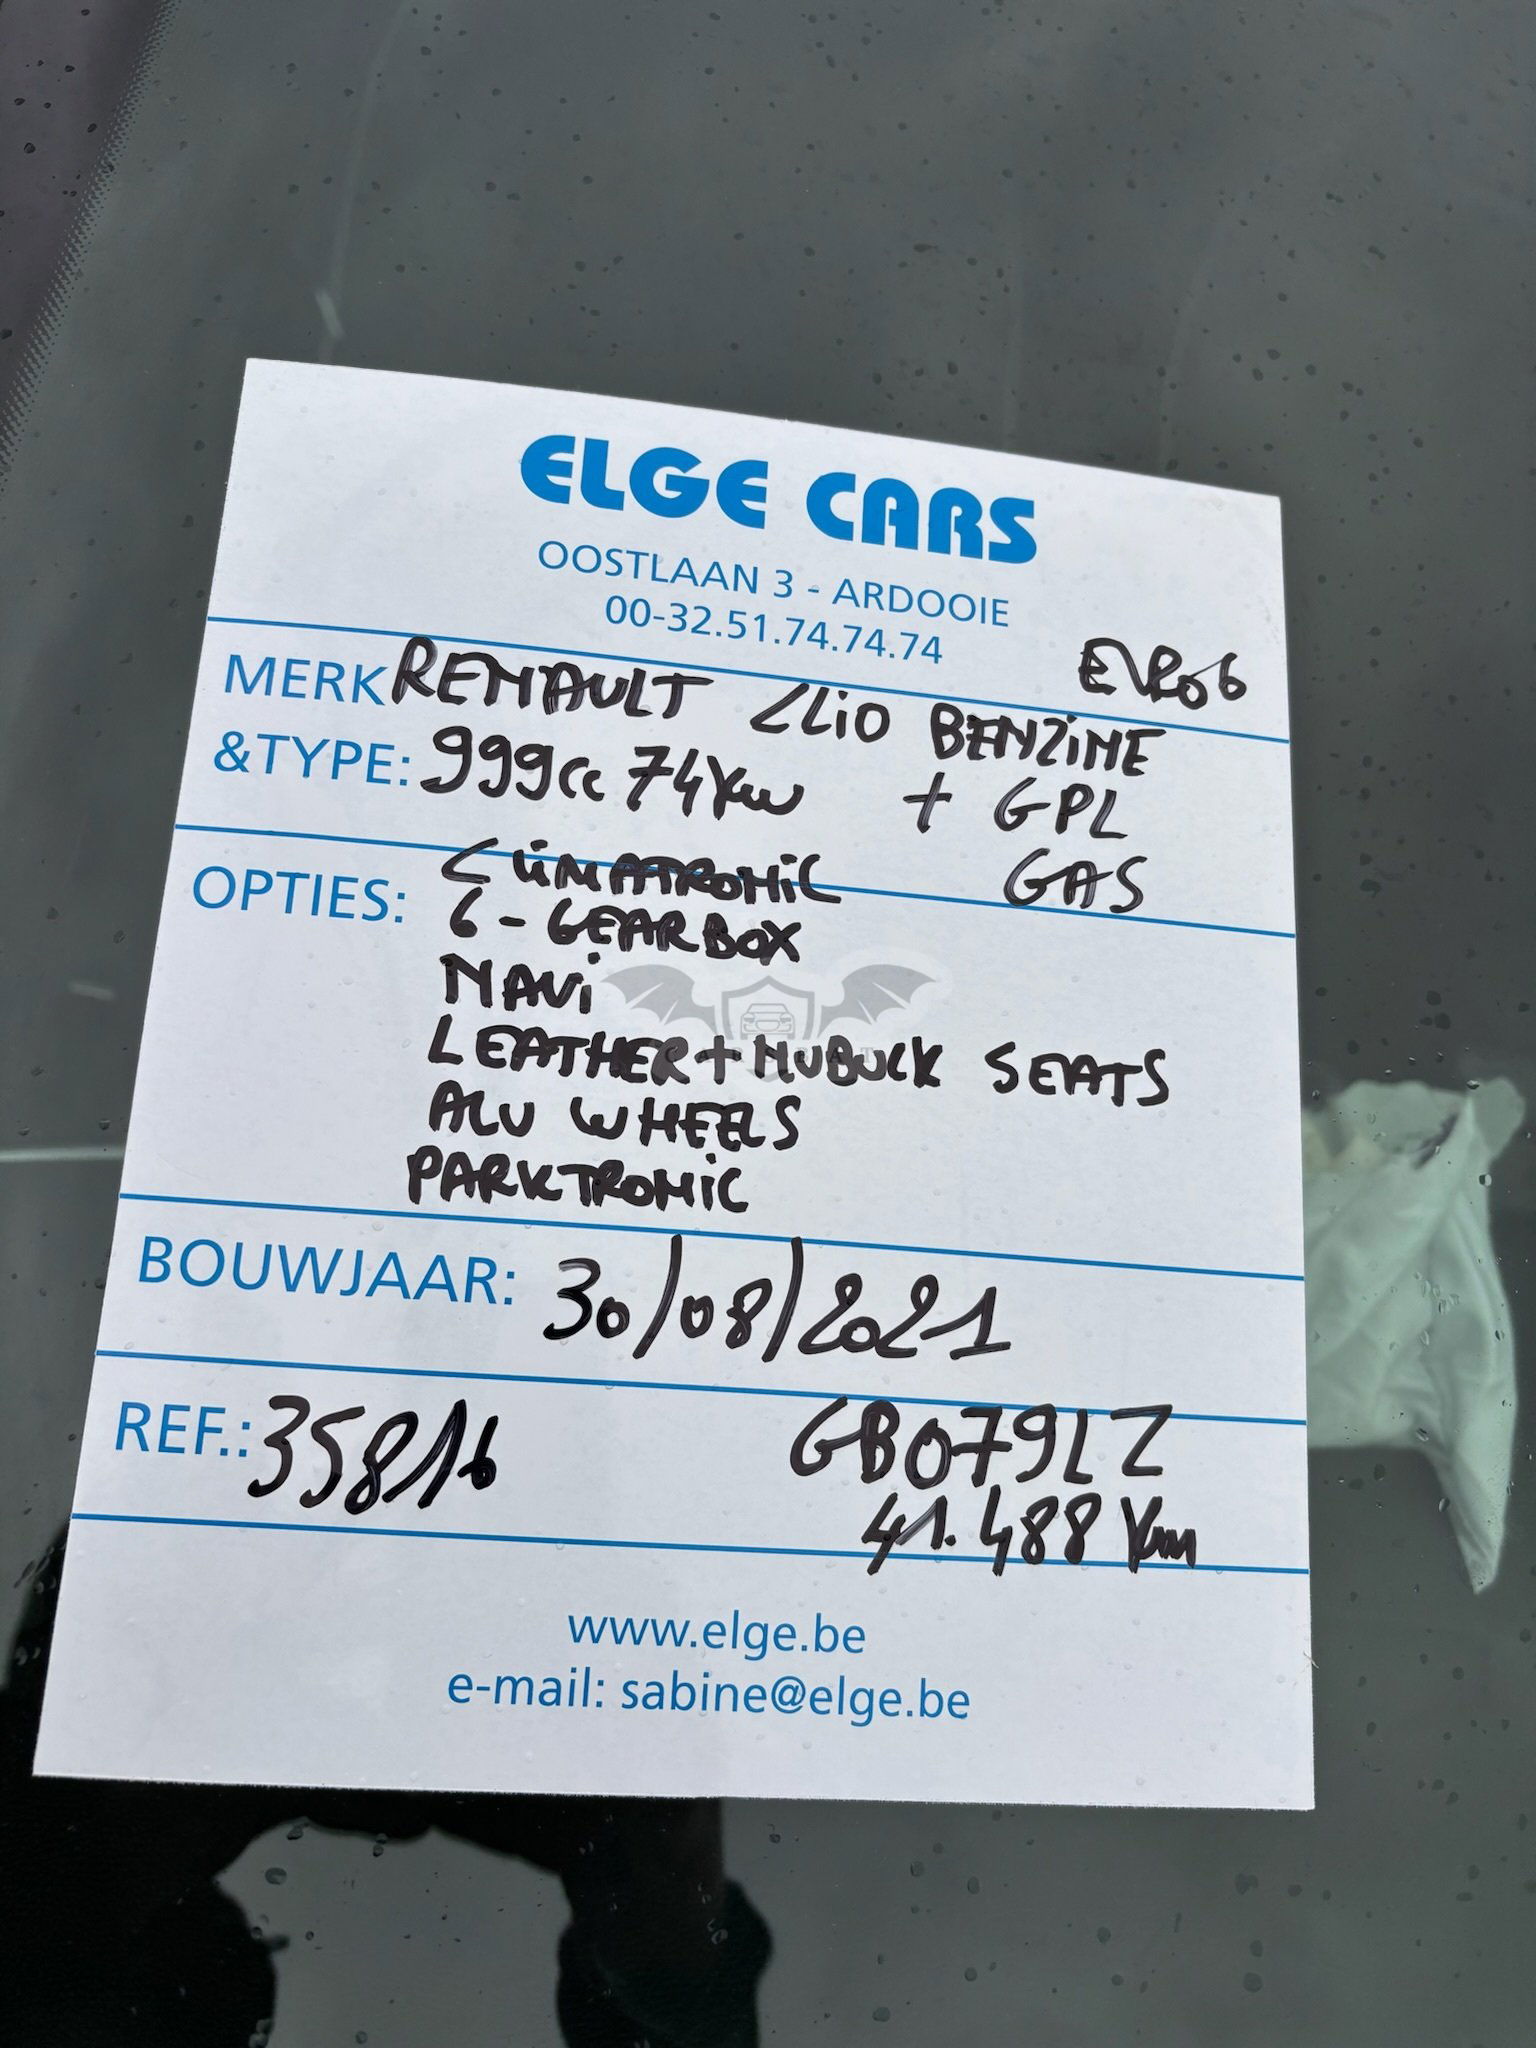 ELGE CARS
OOSTLAAN 3 - ARDOOIE
00-32.51.74.74.74
EURO6
MERK RENAULT CLIO BENZINE
&TYPE: 999cc 74Kw + GPL
GAS
OPTIES: CLIMATRONIC
6-GEARBOX
NAVi
LEATHER+NUBUCK SEATS
ALU WHEELS
PARKTRONiC
BOUWJAAR: 30/08/2021
REF.: 35816 GB079LZ
41.488 Km
www.elge.be
e-mail: sabine@elge.be